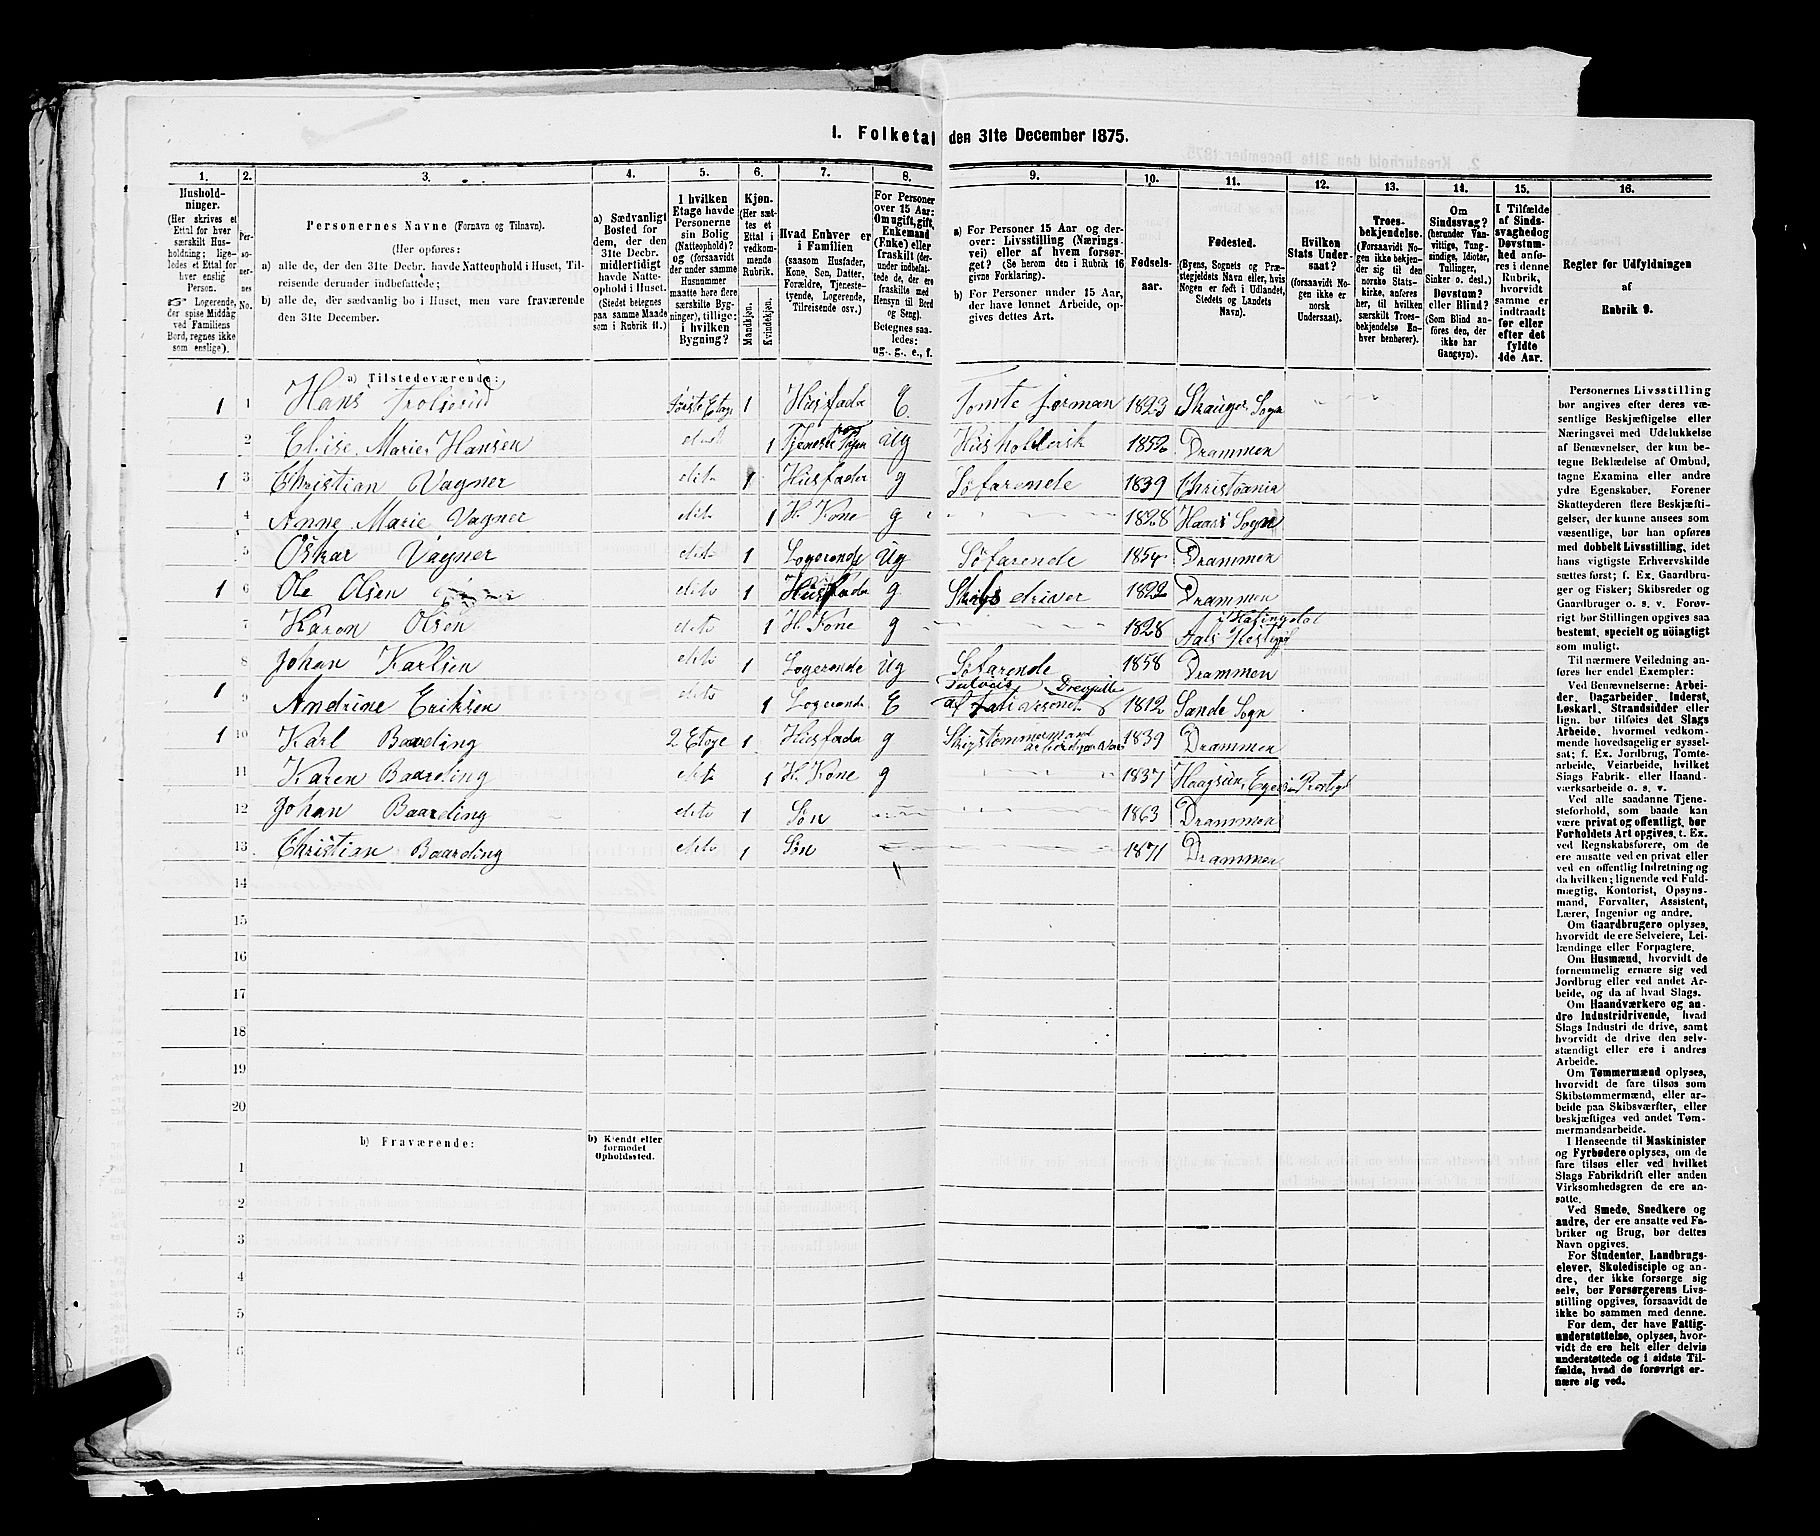 I. Folketal den 31te December 1875.
1. 2. 3. 4. 5. 6. 7. 8. 9. 10. 11. 12. 13. 14. 15. 16.
Hushold-
ninger.
(Her skrives et
Ettal for hver
særskilt Hus-
holdning; lige-
ledes et Ettal for
hver enslig
Person.
☞ Logerende,
der spise Middag
ved Familiens
Bord, regnes ikke
som enslige).
Per-
so-
ner-
nes
No.
Personernes Navne (Fornavn og Tilnavn).
(Her opføres:
a) alle de, der den 31te Decbr. havde Natteophold i Huset, Til-
reisende derunder indbefattede;
b) alle de, der sædvanlig bo i Huset, men vare fraværende
den 31te December.
a) Sædvanligt
Bosted for
dem, der den
31te Decbr.
midlertidigt
havde Natte-
ophold i Huset.
(Stedet betegnes
paa samme Maade
som i Rubrik 11.)
I hvilken
Etage havde
Personerne
sin Bolig
(Natteophold)?
og (forsaavidt
der under samme
Husnummer
maatte høre flere
særskilte Byg-
ninger), tillige:
i hvilken
Bygning?
Kjøn.
(Her sæt-
tes et
Ettal i
vedkom-
mende
Rubrik.
Mandkjøn.
Kvindekjøn.
Hvad Enhver er
i Familien
(saasom Husfader,
Kone, Søn, Datter,
Forældre, Tjeneste-
tyende, Logerende,
Tilreisende osv.)
For Personer
over 15 Aar:
Om ugift, gift,
Enkemand
(Enke) eller
fraskilt (der-
under indbefat-
tede de, der
ere fraskilte med
Hensyn til Bord
og Seng).
Betegnes saa-
ledes:
ug., g., e., f.
a) For Personer 15 Aar og der-
over: Livsstilling (Nærings-
vei) eller af hvem forsør-
get? (Se herom den i Rubrik 16
givne Forklaring).
b) For Personer under 15 Aar,
der have lønnet Arbeide, op-
gives dettes Art.
Fødsels-
aar.
Fødested.
(Byens, Sognets og Præ-
stegjeldets Navn eller, hvis
Nogen er født i Udlandet,
Stedets og Landets
Navn).
Hvilken
Stats Under-
saat?
(forsaavidt No-
gen ikke er
norsk
Undersaat).
Troes-
bekjendelse.
(Forsaavidt No-
gen ikke bekjen-
der sig til den
norske Stats-
kirke, anføres
her, til hvilken
særskilt Troes-
bekjendelse En-
hver henhører).
Om
Sindssvag?
(herunder Van-
vittige, Tung-
sindige, Idioter,
Tullinger,
Sinker o. desl.)
Døvstum?
eller Blind?
(Som Blind an-
føres den, der
ikke har
Gangsyn).
I Tilfælde
af Sinds-
svaghed og
Døvstum-
hed anfø-
res i denne
Rubrik,
hvorvidt
samme er
indtraadt
før eller
efter det
fyldte
4de Aar.
Regler for Udfyldningen
af
Rubrik 9.
a) Tilstedeværende:
1 1 Hans Første Etage 1 Husfader E. Tomte forman 1823 Skauger Sogn
2 Elise Marie Hansen dito 1 Tjeneste ug Husholdersk 1852 Drammen
1 3 Christian Vagner dito 1 Husfader g Søfarende 1839 Christiania
4 Anne Marie Vagner dito 1 H. Kone g 1828 Sogn
5 Oskar Vagner dito 1 Logerende Ug Søfarende 1854 Drammen
1 6 Ole Olsen dito 1 Husfader g 1822 Drammen
7 Karen Olsen dito 1 H. Kone g 1828
8 Johan Karlsen dito 1 Logerende Ug Søfarende 1858 Drammen
1 9 Andrine Eriksen dito 1 Logerende E 1812 Sande Sogn
1 10 Karl Baarding 2 Etage 1 Husfader g 1839 Drammen
11 Karen Baarding dito 1 H. Kone g 1837
12 Johan Baarding dito 1 Søn 1863 Drammen
13 Christian Baarding dito 1 Søn 1871 Drammen
14
15
16
17
18
19
20
b) Fraværende: b) Kjendt eller
formodet
Opholdssted.
1
2
3
4
5
6
Personernes Livsstilling
bør angives efter deres væ-
sentlige Beskjæftigelse eller
Næringsvei med Udelukkelse
af Benævnelser, der kun be-
tegne Beklædelse af Ombud,
tagne Examina eller andre
ydre Egenskaber. Forener
Skatteyderen flere Beskjæfti-
gelser, der kunne ansees som
væsentlige, bør han opføres
med dobbelt Livsstilling, idet
hans vigtigste Erhvervskilde
sættes først; f. Ex. Gaardbru-
ger og Fisker; Skibsreder og
Gaardbruger o. s. v. Forøv-
rigt bør Stillingen opgives saa
bestemt, specielt og nöiagtigt
som muligt.
Til nærmere Veiledning an-
føres her endel Exempler:
Ved Benævnelserne: Arbei-
der, Dagarbeider, Inderst,
Løskarl, Strandsidder eller
lign. bør tilføies det Slags
Arbeide, hvormed vedkom-
mende hovedsagelig er syssel-
sat; f. Ex. Jordbrug, Tomte-
arbeide, Veiarbeide, hvilket
Slags Fabrik- eller Haand-
værksarbeide o. s. v.
Ved alle saadanne Tjene-
steforhold, som baade kan
være privat og offentligt, bør
Forholdets Art opgives, t. Ex.
ved Regnskabsførere, om de
ere ansatte ved en privat eller
ved en offentlig Indretning og
da hvilken; lignende ved Fuld-
mægtig, Kontorist, Opsyns-
mand, Forvalter, Assistent,
Lærer, Ingeniør og andre.
Om Gaardbrugere oplyses,
hvorvidt de ere Selveiere, Lei-
lændinge eller Forpagtere.
Om Husmænd, hvorvidt de
fornemmelig ernære sig ved
Jordbrug eller ved andet Ar-
beide, og da af hvad Slags.
Om Haandværkere og an-
dre Industridrivende, hvad
Slags Industri de drive, samt
hvorvidt de drive den selv-
stændigt eller ere i andres
Arbeide.
Om Tømmermænd oplyses,
hvorvidt de fare tilsøs som
Skibstømmermænd, eller ar-
beide paa Skibsværfter, eller
beskjæftiges ved andet Tøm-
mermandsarbeide.
I Henseende til Maskinister
og Fyrbødere oplyses, om de
fare tilsøs eller ved hvilket
Slags Fabrikdrift eller anden
Virksomhedsgren de ere an-
satte.
Ved Smede, Snedkere og
andre, der ere ansatte ved Fa-
briker og Brug, bør dettes
Navn opgives.
For Studenter, Landbrugs-
elever, Skoledisciple og an-
dre, der ikke forsørge sig
selv, bør Forsørgerens Livs-
stilling opgives, forsaavidt de
ikke bo sammen med denne.
For dem, der have Fattig-
understøttelse, oplyses, hvor-
vidt de ere helt eller delvis
understøttede og i sidste Til-
fælde, hvad de forøvrigt er-
nære sig ved.